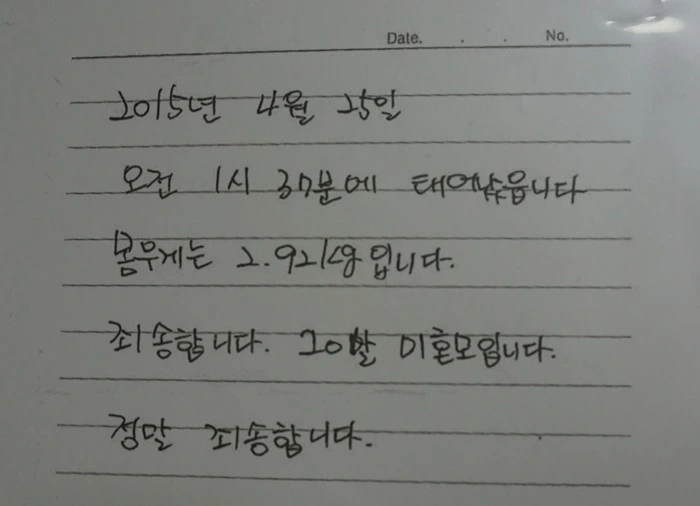 Date. . . No.
2015년 4월 25일
오전 1시 37분에 태어났읍니다
몸무게는 2.92kg 입니다.
죄송합니다. 20살 미혼모입니다.
정말 죄송합니다.